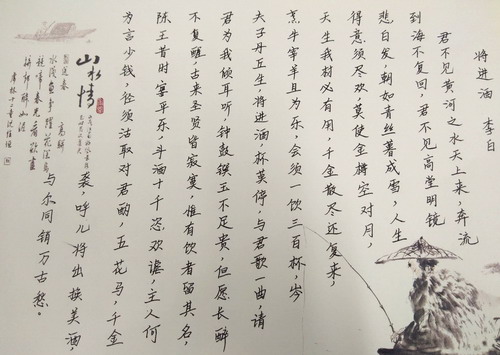 将进酒 李白
君不见黄河之水天上来，奔流
到海不复回，君不见高堂明镜
悲白发，朝如青丝暮成雪，人生
得意须尽欢，莫使金樽空对月，
天生我材必有用，千金散尽还复来，
烹牛宰羊且为乐，会须一饮三百杯，岑
夫子丹丘生，将进酒，杯莫停，与君歌一曲，请
君为我倾耳听，钟鼓馔玉不足贵，但愿长醉
不复醒，古来圣贤皆寂寞，惟有饮者留其名，
陈王昔时宴平乐，斗酒十千恣欢谑，主人何
为言少钱，径须沽取对君酌，五花马，千金
裘，呼儿将出换美酒，
与尔同销万古愁。
山水情
高骈